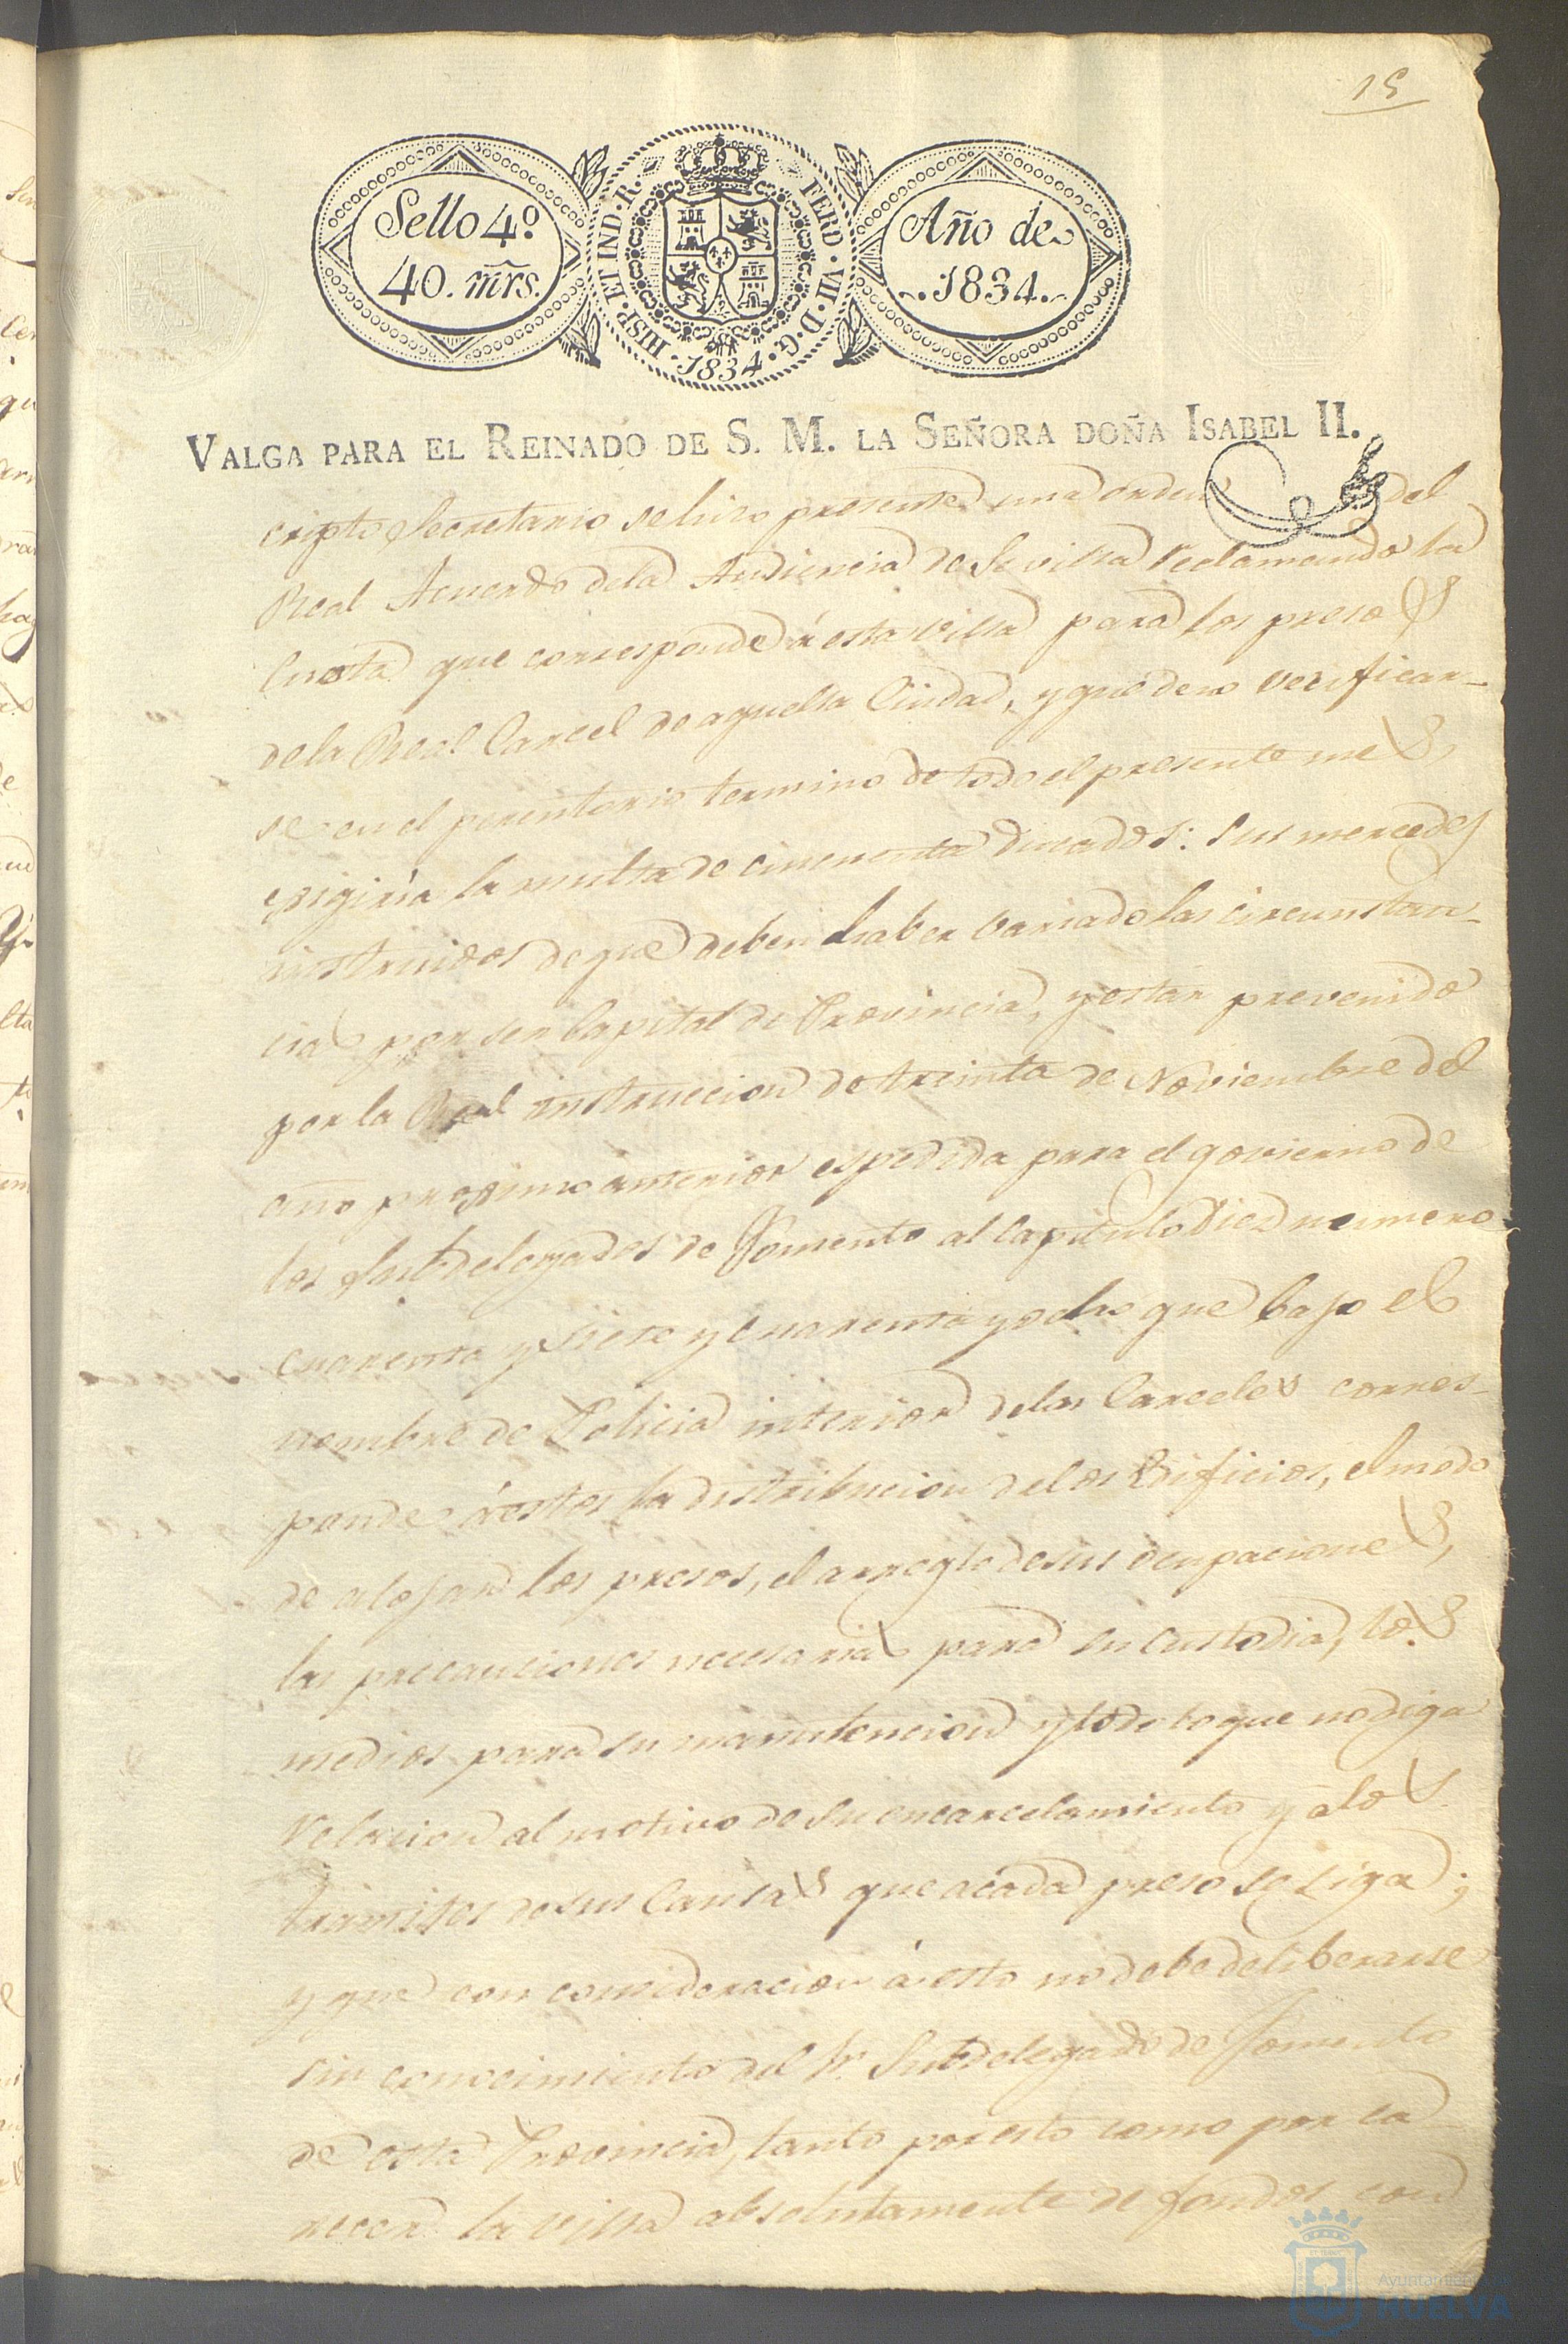 15
Sello 4º
40. mrs.
HISP. ET IND. R. FERD. VII. D. G. 1834.
Año de
1834.
VALGA PARA EL REINADO DE S. M. LA SEÑORA DOÑA ISABEL II.
cripto Secretario se hizo presente una orden del
Real Acuerdo dela Audiencia de Sevilla reclamando la
Cuota que corresponde á esta Villa para los presos
dela Real Carcel de aquella Ciudad, y que de no verificar-
se en el perentorio termino de todo el presente mes,
exigiria la multa de cincuenta ducados: sus mercedes
instruidos de que deben haber variado las circunstan-
cias por ser Capital de Provincia, y estar prevenido
por la Real instruccion de treinta de Noviembre del
año proximo anterior espedida para el govierno de
los Subdelegados de Fomento al Capitulo diez numero
cuarenta y siete y cuarenta y ocho que bajo el
nombre de Policia interior delas Carceles corres-
ponde á estos la distribucion delos Edificios, el modo
de alojar los presos, el arreglo de sus ocupaciones,
las precauciones necesarias para su custodia, los
medios para su manutencion y todo lo que no diga
relacion al motivo de su encarcelamiento y álos
tramites de sus Causas que acada preso se siga;
y que con consideracion á esto no debe deliberarse
sin conocimiento del Sr. Subdelegado de Fomento
de esta Provincia, tanto por esto como por ca
recer la villa absolutamente de fondos con
Ayuntamiento de
HUELVA